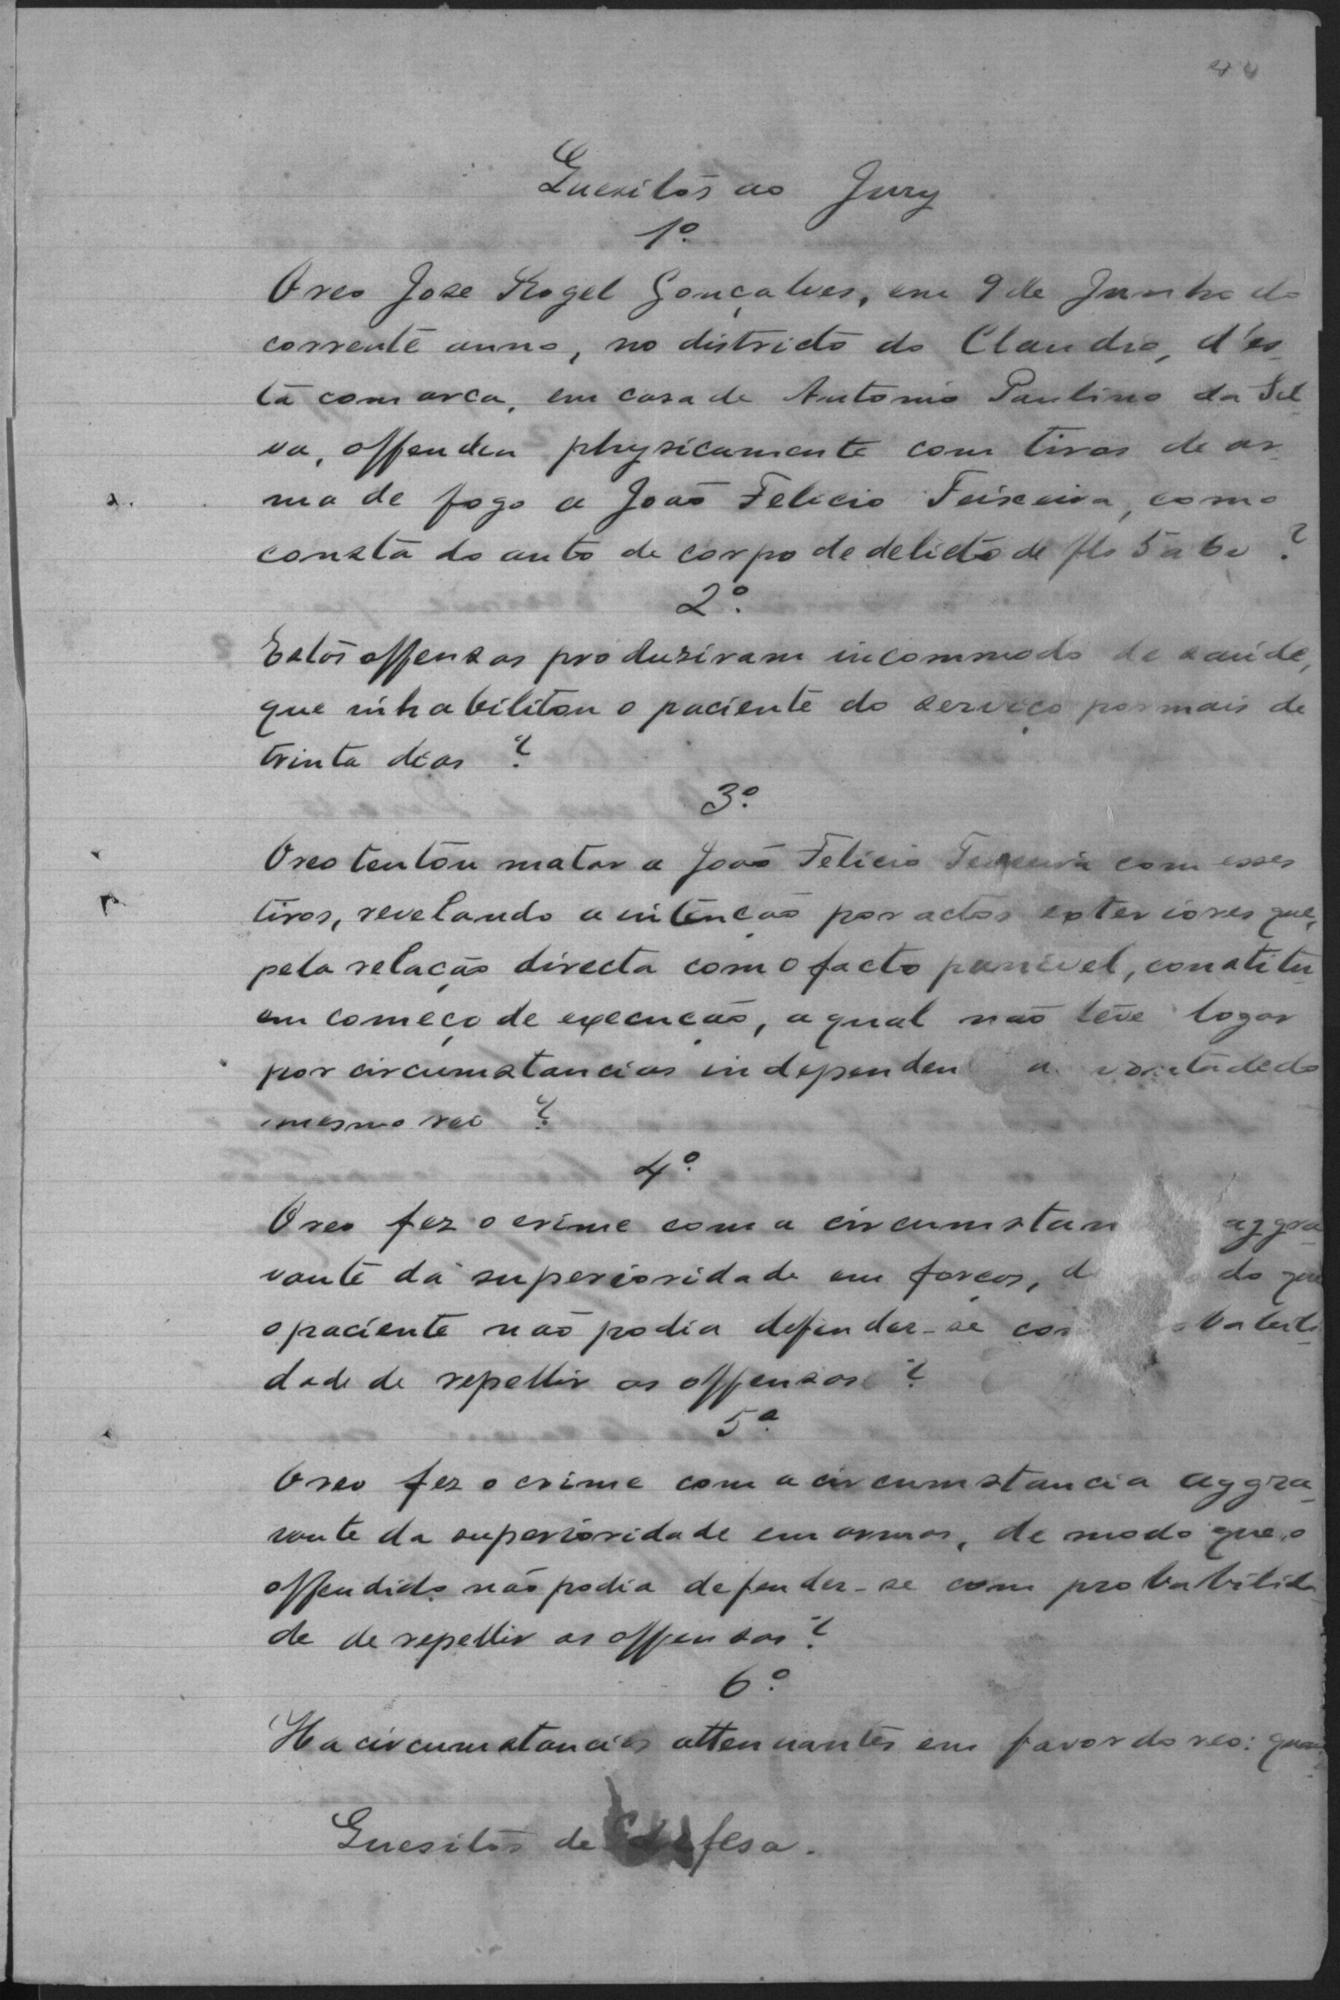 44
Quesitos ao Jury
1º
O reo José Rogel Gonçalves, em 9 de Junho do
corrente anno, no districto do Claudio, d'es-
ta comarca, em casa de Antonio Paulino da Sil-
va, offendeu physicamente com tiros de ar-
ma de fogo a João Felicio Teixeira, como
consta do auto de corpo de delicto de fls 5 a 6v ?
2º
Estas offensas produziram incommodo de saúde,
que inhabilitou o paciente do serviço por mais de
trinta dias ?
3º
O reo tentou matar a João Felicio Teixeira com esses
tiros, revelando a intenção por actos exteriores que,
pela relação directa com o facto punivel, constitu-
em começo de execução, a qual não teve logar
por circumstancias independen a vontade do
mesmo reo ?
4º
O reo fez o crime com a circumstan aggra-
vante da superioridade em forças, d do que
o paciente não podia defender-se co babili-
dade de repellir as offensas ?
5º
O reo fez o crime com a circumstancia aggra-
vante da superioridade em armas, de modo que o
offendido não podia defender-se com probabilida-
de de repellir as offensas ?
6º
Ha circumstancias attenuantes em favor do reo:
Quesitos de defesa.